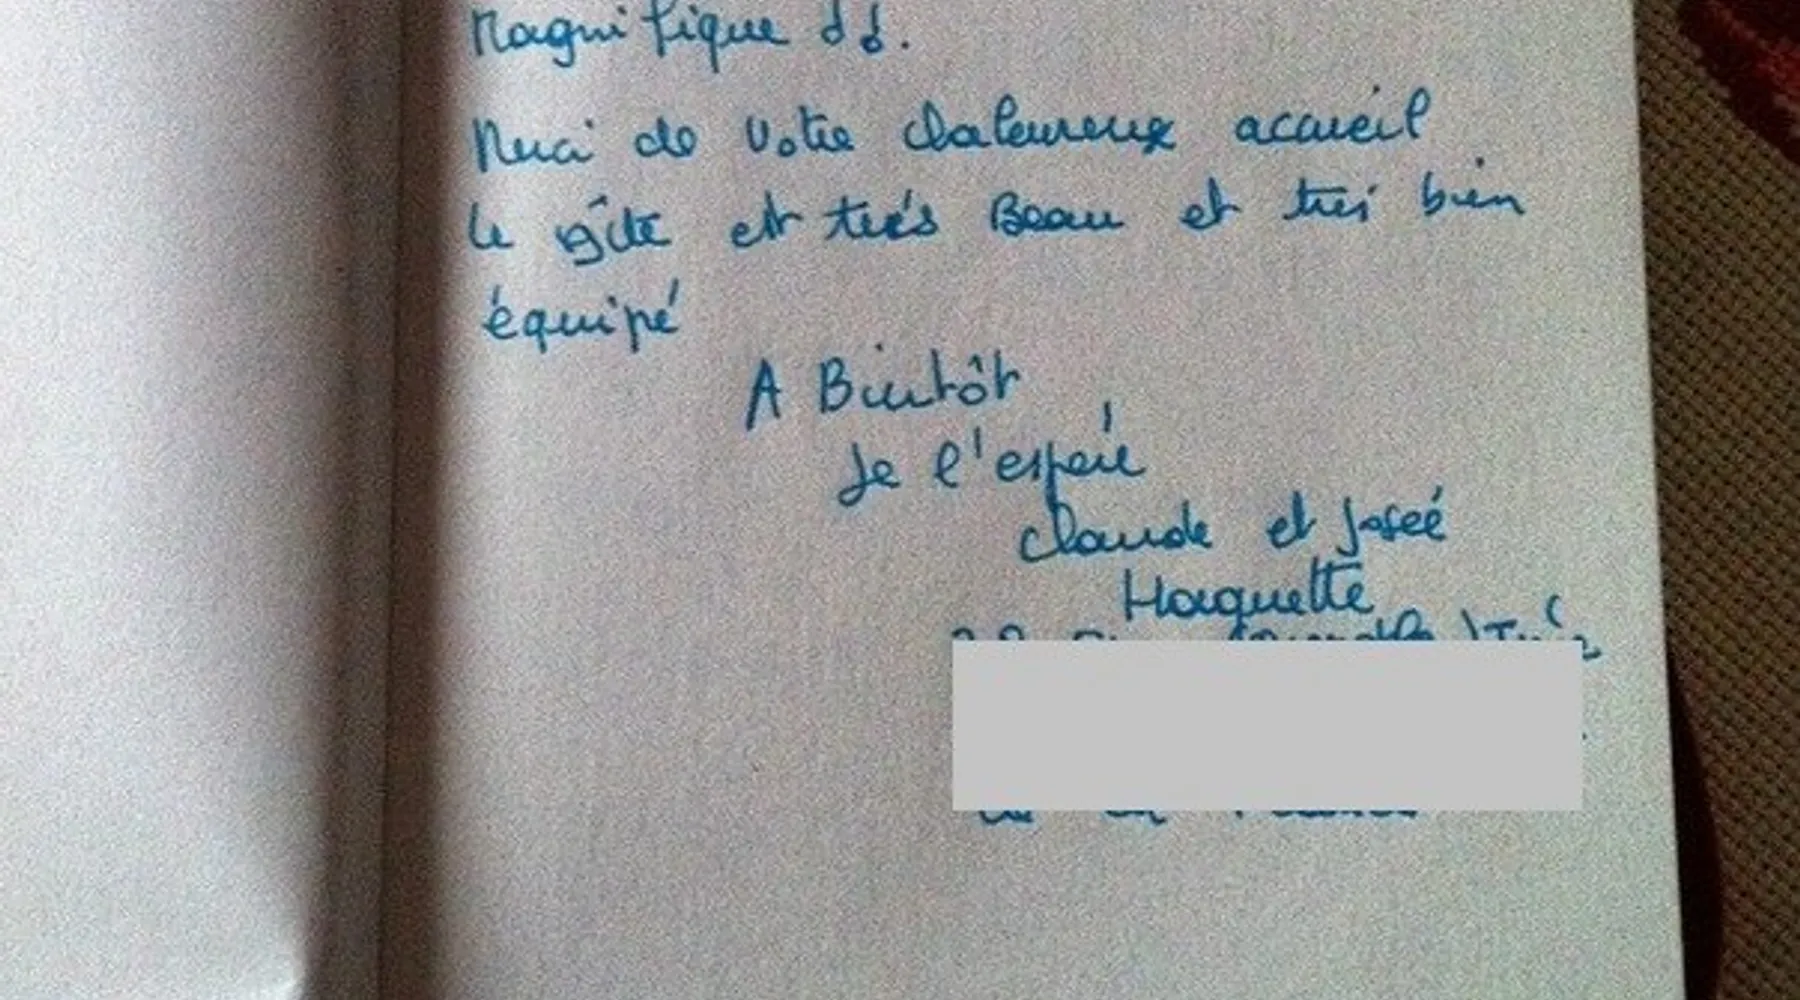 Magnifique !!.
Merci de votre chaleureux accueil
le gîte est trés Beau et trés bien
équipé
A Bientôt
Je l'espére
Claude et Joseé
Haquette